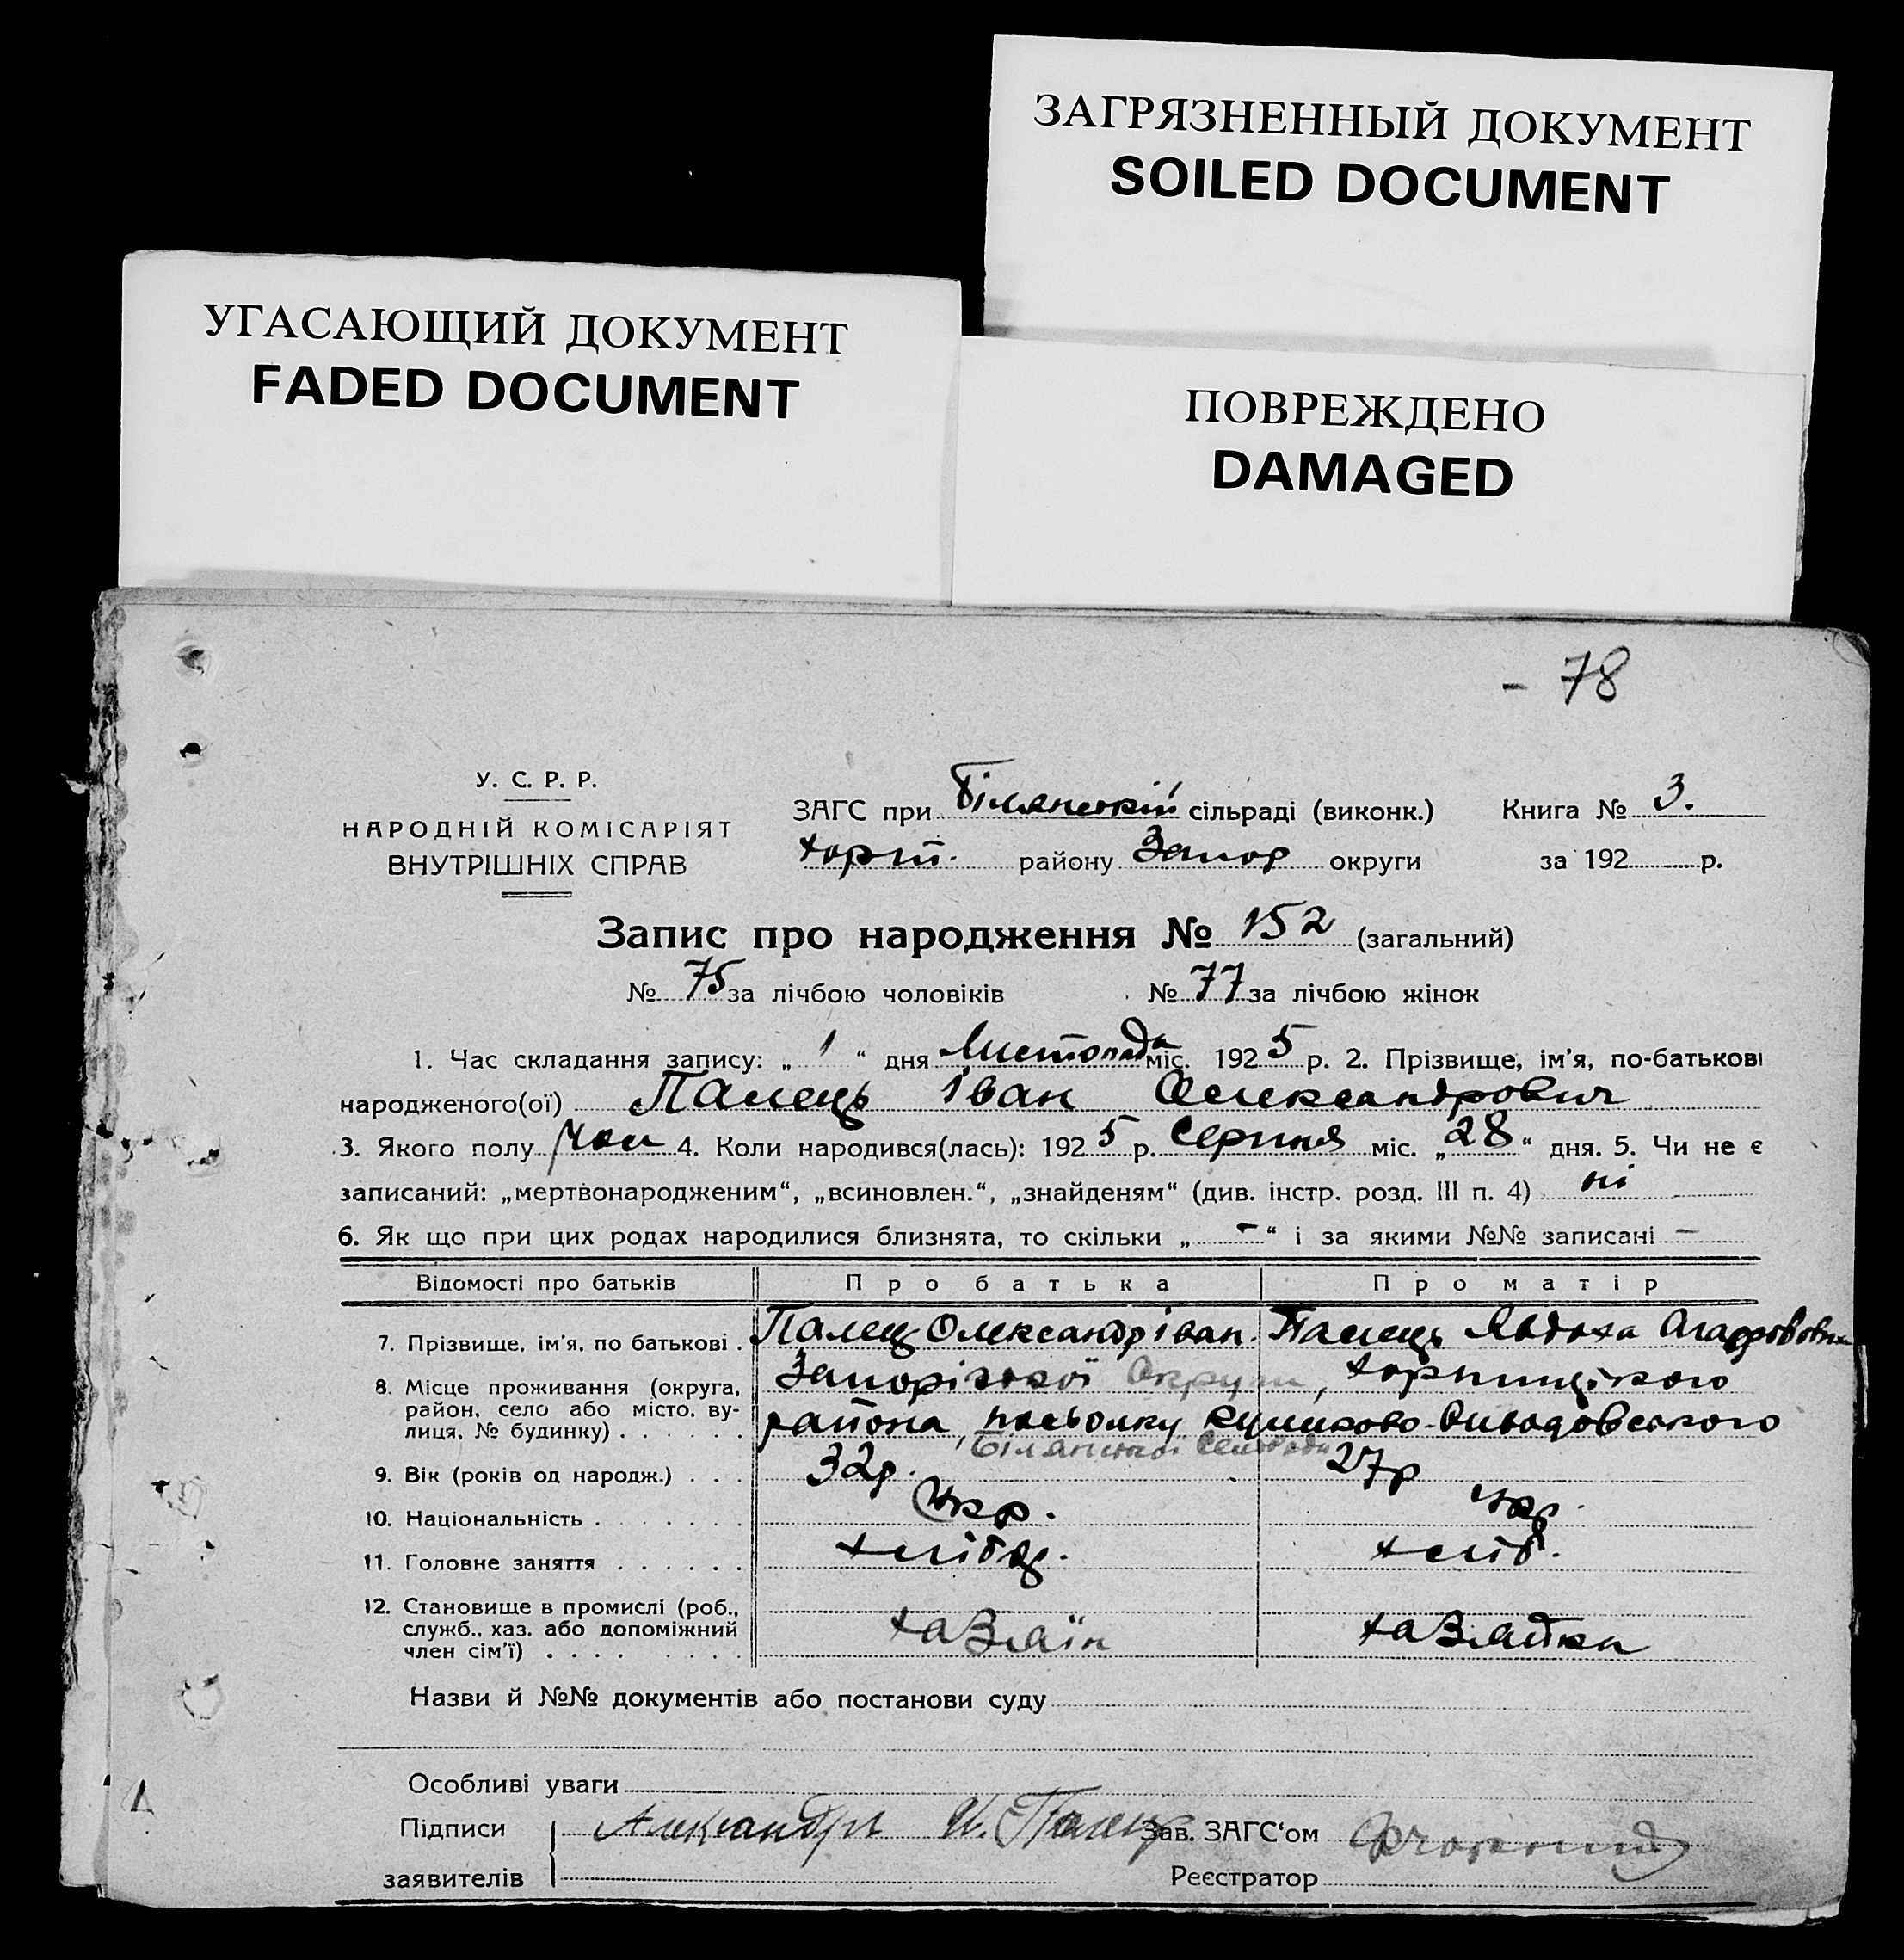 ЗАГРЯЗНЕННЫЙ ДОКУМЕНТ
SOILED DOCUMENT
УГАСАЮЩИЙ ДОКУМЕНТ
FADED DOCUMENT
ПОВРЕЖДЕНО
DAMAGED
- 78
У. С. Р. Р.
НАРОДНІЙ КОМІСАРІЯТ
ВНУТРІШНІХ СПРАВ
ЗАГС при Білянській сільраді (виконк.)
Хорт. району Запор округи
Книга № 3.
за 192 р.
Запис про народження № 152 (загальний)
№ 75 за лічбою чоловіків № 77 за лічбою жінок
1. Час складання запису: „ 1 “ дня Листопада міс. 1925 р. 2. Прізвище, ім'я, по-батькові
народженого(ої) Палець Іван Олександрович
3. Якого полу чол 4. Коли народився(лась): 1925 р. Серпня міс. „ 28 “ дня. 5. Чи не є
записаний: „мертвонародженим“, „всиновлен.“, „знайденям“ (див. інстр. розд. III п. 4) ні
6. Як що при цих родах народилися близнята, то скільки „ - “ і за якими №№ записані -
Відомості про батьків Про батька Про матір
7. Прізвище, ім'я, по батькові . Палец Олександр Іван. Палець Явдоха
8. Місце проживання (округа, район, село або місто, вулиця, № будинку) . . . . . . Запорізької Округи, Хортицького
района,
Білянської Сельради
9. Вік (років од народж.) . . . 32р. 27р
10. Національність . . . . . . . Укр. Укр.
11. Головне заняття . . . . . . Хлібор. Хліб.
12. Становище в промислі (роб., служб., хаз. або допоміжний член сім'ї) . . . . . . . . хазяїн хазяйка
Назви й №№ документів або постанови суду
Особливі уваги
Підписи заявителів Александръ И. Палец
Зав. ЗАГС'ом
Реєстратор